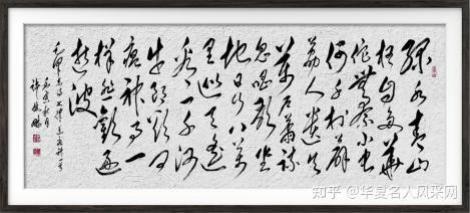 绿水青山
枉自多華
佗無奈小虫
何千村薜
荔人遗矢
萬户萧疏
鬼唱歌坐
地日行八萬
里巡天遥
看一千河
牛郎欲问
瘟神事一
樣悲歡逐
逝波
知乎 @华夏名人风采网